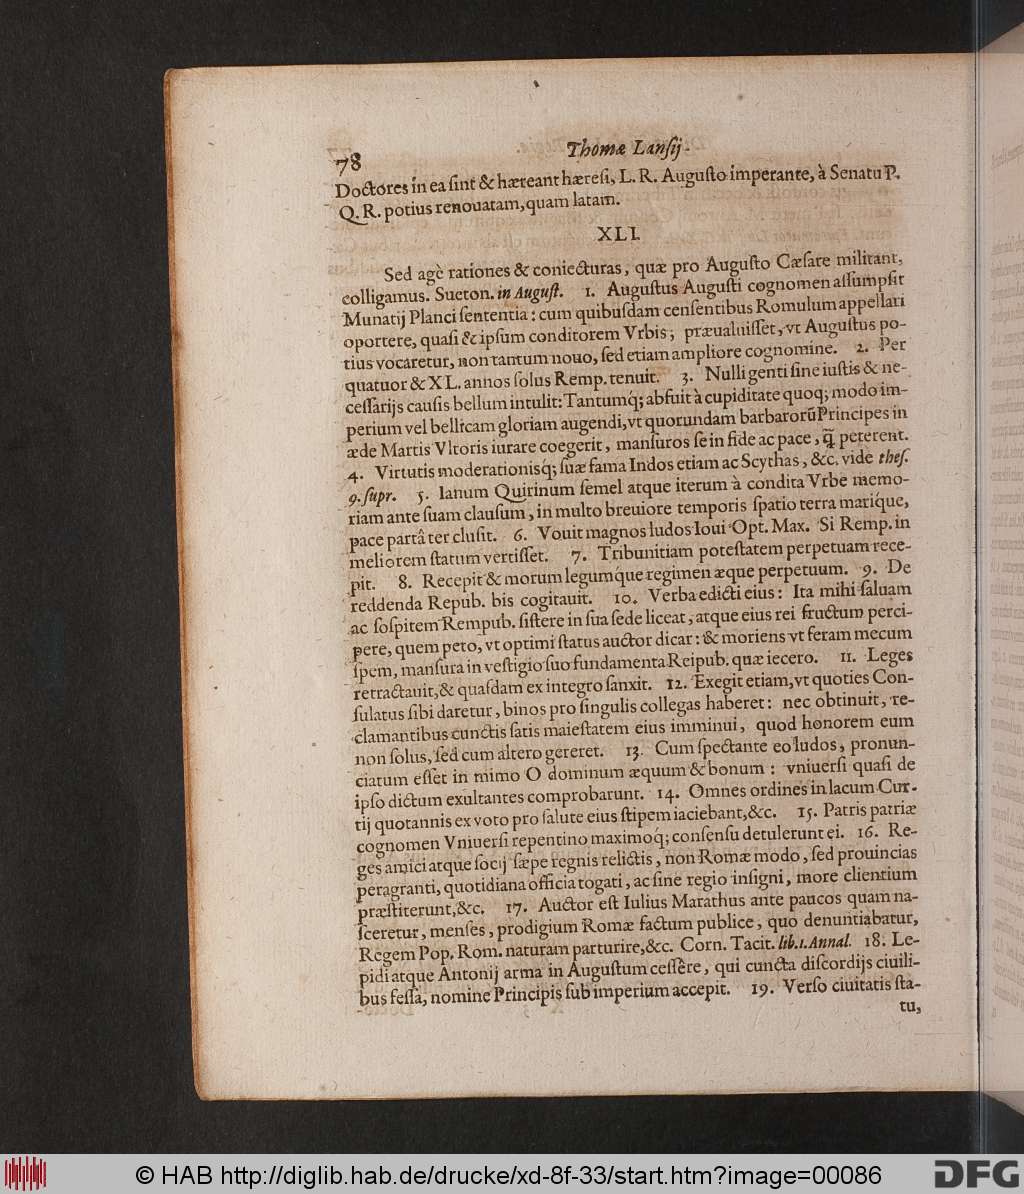 78 Thomæ Lansij.
Doctores in ea sint & hæreant hæresi, L. R. Augusto imperante, à Senatu P.
Q. R. potius renouatam, quam latam.
XLI.
Sed agè rationes & coniecturas, quæ pro Augusto Cæsare militant,
colligamus. Sueton. in August. 1. Augustus Augusti cognomen assumpsit
Munatij Planci sententia: cum quibusdam censentibus Romulum appellari
oportere, quasi & ipsum conditorem Vrbis; præualuisset, vt Augustus po-
tius vocaretur, non tantum nouo, sed etiam ampliore cognomine. 2. Per
quatuor & XL. annos solus Remp. tenuit. 3. Nulli genti sine iustis & ne-
cessarijs causis bellum intulit: Tantumq; abfuit à cupiditate quoq; modo im-
perium vel bellicam gloriam augendi, vt quorundam barbarorũ Principes in
æde Martis Vltoris iurare coegerit, mansuros se in fide ac pace, q̃ peterent.
4. Virtutis moderationisq́; suæ fama Indos etiam ac Scythas, &c. vide thes.
9. supr. 5. Ianum Quirinum semel atque iterum à condita Vrbe memo-
riam ante suam clausum, in multo breuiore temporis spatio terra mariq́ue,
pace partâ ter clusit. 6. Vouit magnos ludos Ioui Opt. Max. Si Remp. in
meliorem statum vertisset. 7. Tribunitiam potestatem perpetuam rece-
pit. 8. Recepit & morum legumq́ue regimen æque perpetuum. 9. De
reddenda Repub. bis cogitauit. 10. Verba edicti eius: Ita mihi saluam
ac sospitem Rempub. sistere in sua sede liceat, atque eius rei fructum perci-
pere, quem peto, vt optimi status auctor dicar: & moriens vt feram mecum
spem, mansura in vestigio suo fundamenta Reipub. quæ iecero. 11. Leges
retractauit, & quasdam ex integro sanxit. 12. Exegit etiam, vt quoties Con-
sulatus sibi daretur, binos pro singulis collegas haberet: nec obtinuit, re-
clamantibus cunctis satis maiestatem eius imminui, quod honorem eum
non solus, sed cum altero gereret. 13. Cum spectante eo ludos, pronun-
ciatum esset in mimo O dominum æquum & bonum: vniuersi quasi de
ipso dictum exultantes comprobarunt. 14. Omnes ordines in lacum Cur-
tij quotannis ex voto pro salute eius stipem iaciebant, &c. 15. Patris patriæ
cognomen Vniuersi repentino maximoq́; consensu detulerunt ei. 16. Re-
ges amici atque socij sæpe regnis relictis, non Romæ modo, sed prouincias
peragranti, quotidiana officia togati, ac sine regio insigni, more clientium
præstiterunt, &c. 17. Auctor est Iulius Marathus ante paucos quam na-
sceretur, menses, prodigium Romæ factum publice, quo denuntiabatur,
Regem Pop. Rom. naturam parturire, &c. Corn. Tacit. lib. 1. Annal. 18. Le-
pidi atque Antonij arma in Augustum cessêre, qui cuncta discordijs ciuili-
bus fessa, nomine Principis sub imperium accepit. 19. Verso ciuitatis sta-
tu,
© HAB http://diglib.hab.de/drucke/xd-8f-33/start.htm?image=00086
DFG